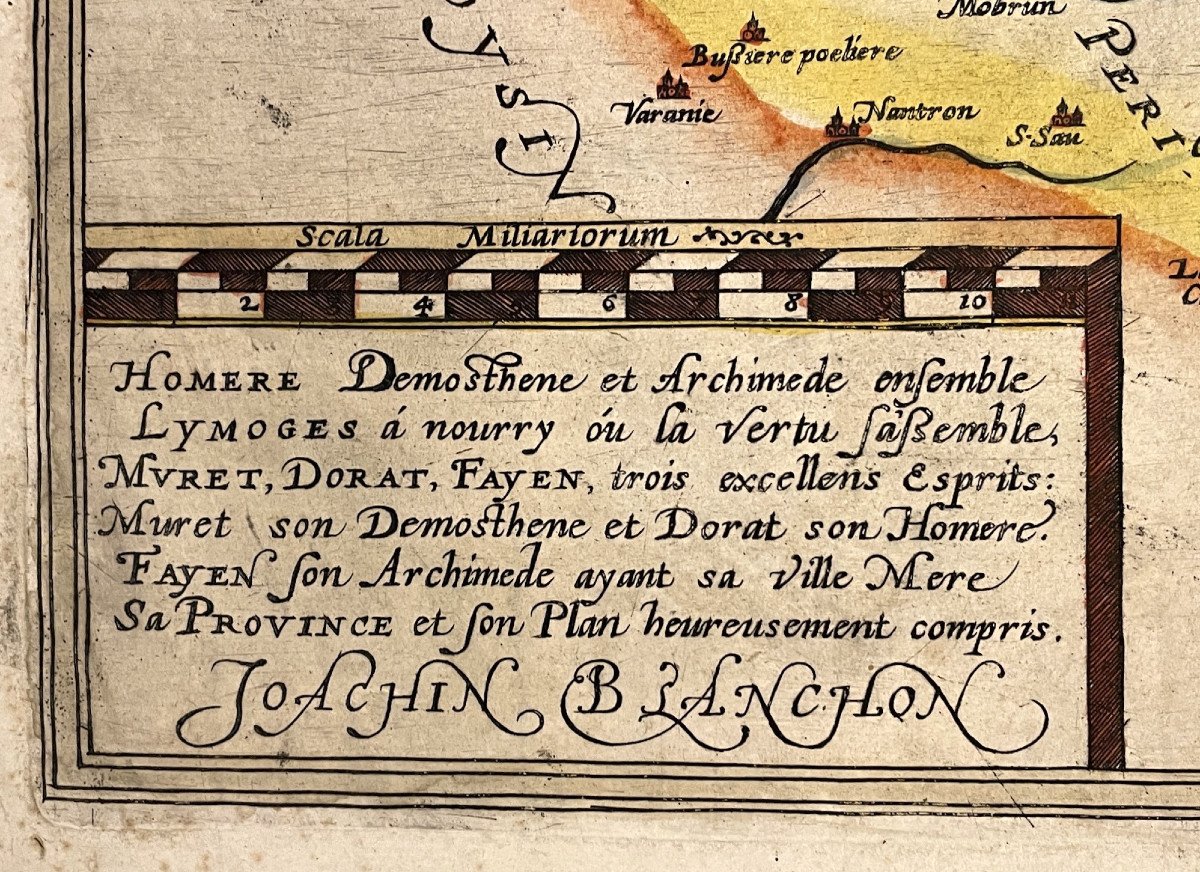 Mobrun
PERI
YSIN
Bußiere poeliere
Varanie
Nantron
S-Sau
Scala Miliariorum
2 3 4 5 6 7 8 9 10 11
HOMERE Demosthene et Archimede enſemble
LYMOGES á nourry óu la vertu ſ'aßemble,
MVRET, DORAT, FAYEN, trois excellens Esprits:
Muret son Demosthene et Dorat son Homere.
FAYEN ſon Archimede ayant sa ville Mere
Sa PROVINCE et ſon Plan heureusement compris.
JOACHIN BLANCHON